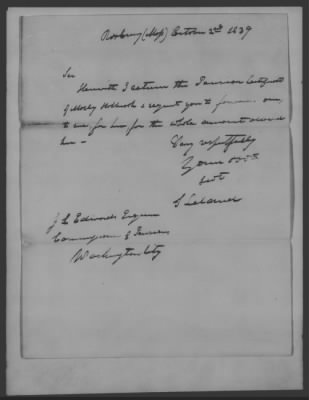 Roxbury (Mass) October 2d 1839
Sir
Herewith I return the Pension Certificate
of & request you to forward one
to me for him for the whole amount allowed
him –
Very respectfully
Your Obt
Servt
S Leland
J L Edwards Esquire
Commissioner of Pensions
Washington City